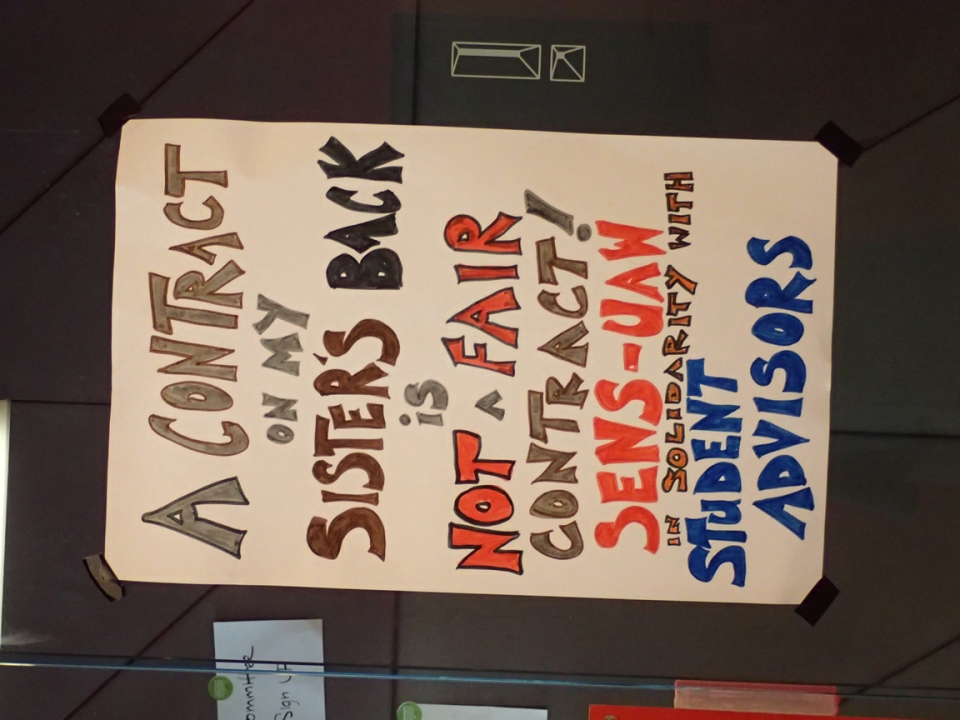 A CONTRACT
ON MY
SISTER'S BACK
is
NOT A FAIR
CONTRACT!
SENS-UAW
IN SOLIDARITY WITH
STUDENT
ADVISORS
Sign